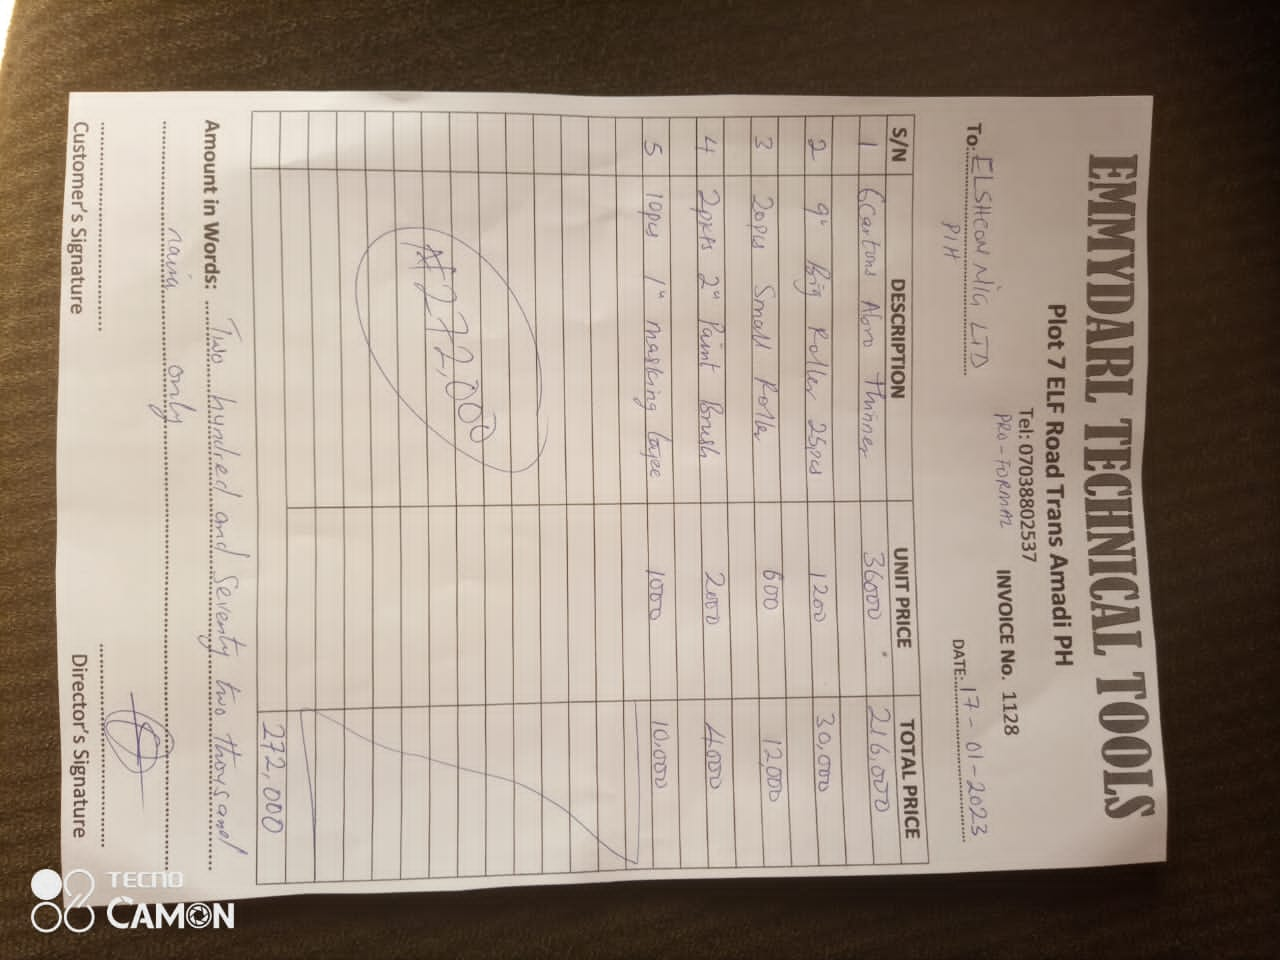 EMMYDARI TECHNICAL TOOLS
Plot 7 ELF Road Trans Amadi PH
Tel: 07038802537
PRO-FORMAL INVOICE No. 1128
To: ELSHCON NIG LTD
P/H
DATE: 17-01-2023
S/N DESCRIPTION UNIT PRICE TOTAL PRICE
1 6cartons Abro thinner 36000 216,000
2 9" Big Roller 25pcs 1200 30,000
3 20pcs Small Roller 600 12,000
4 2pkts 2" Paint Brush 2000 4000
5 10pcs 1" masking tapee 1000 10,000
₦272,000
272,000
Amount in Words: Two hundred and Seventy two thousand
naira only
Customer's Signature Director's Signature
TECNO
CAMON